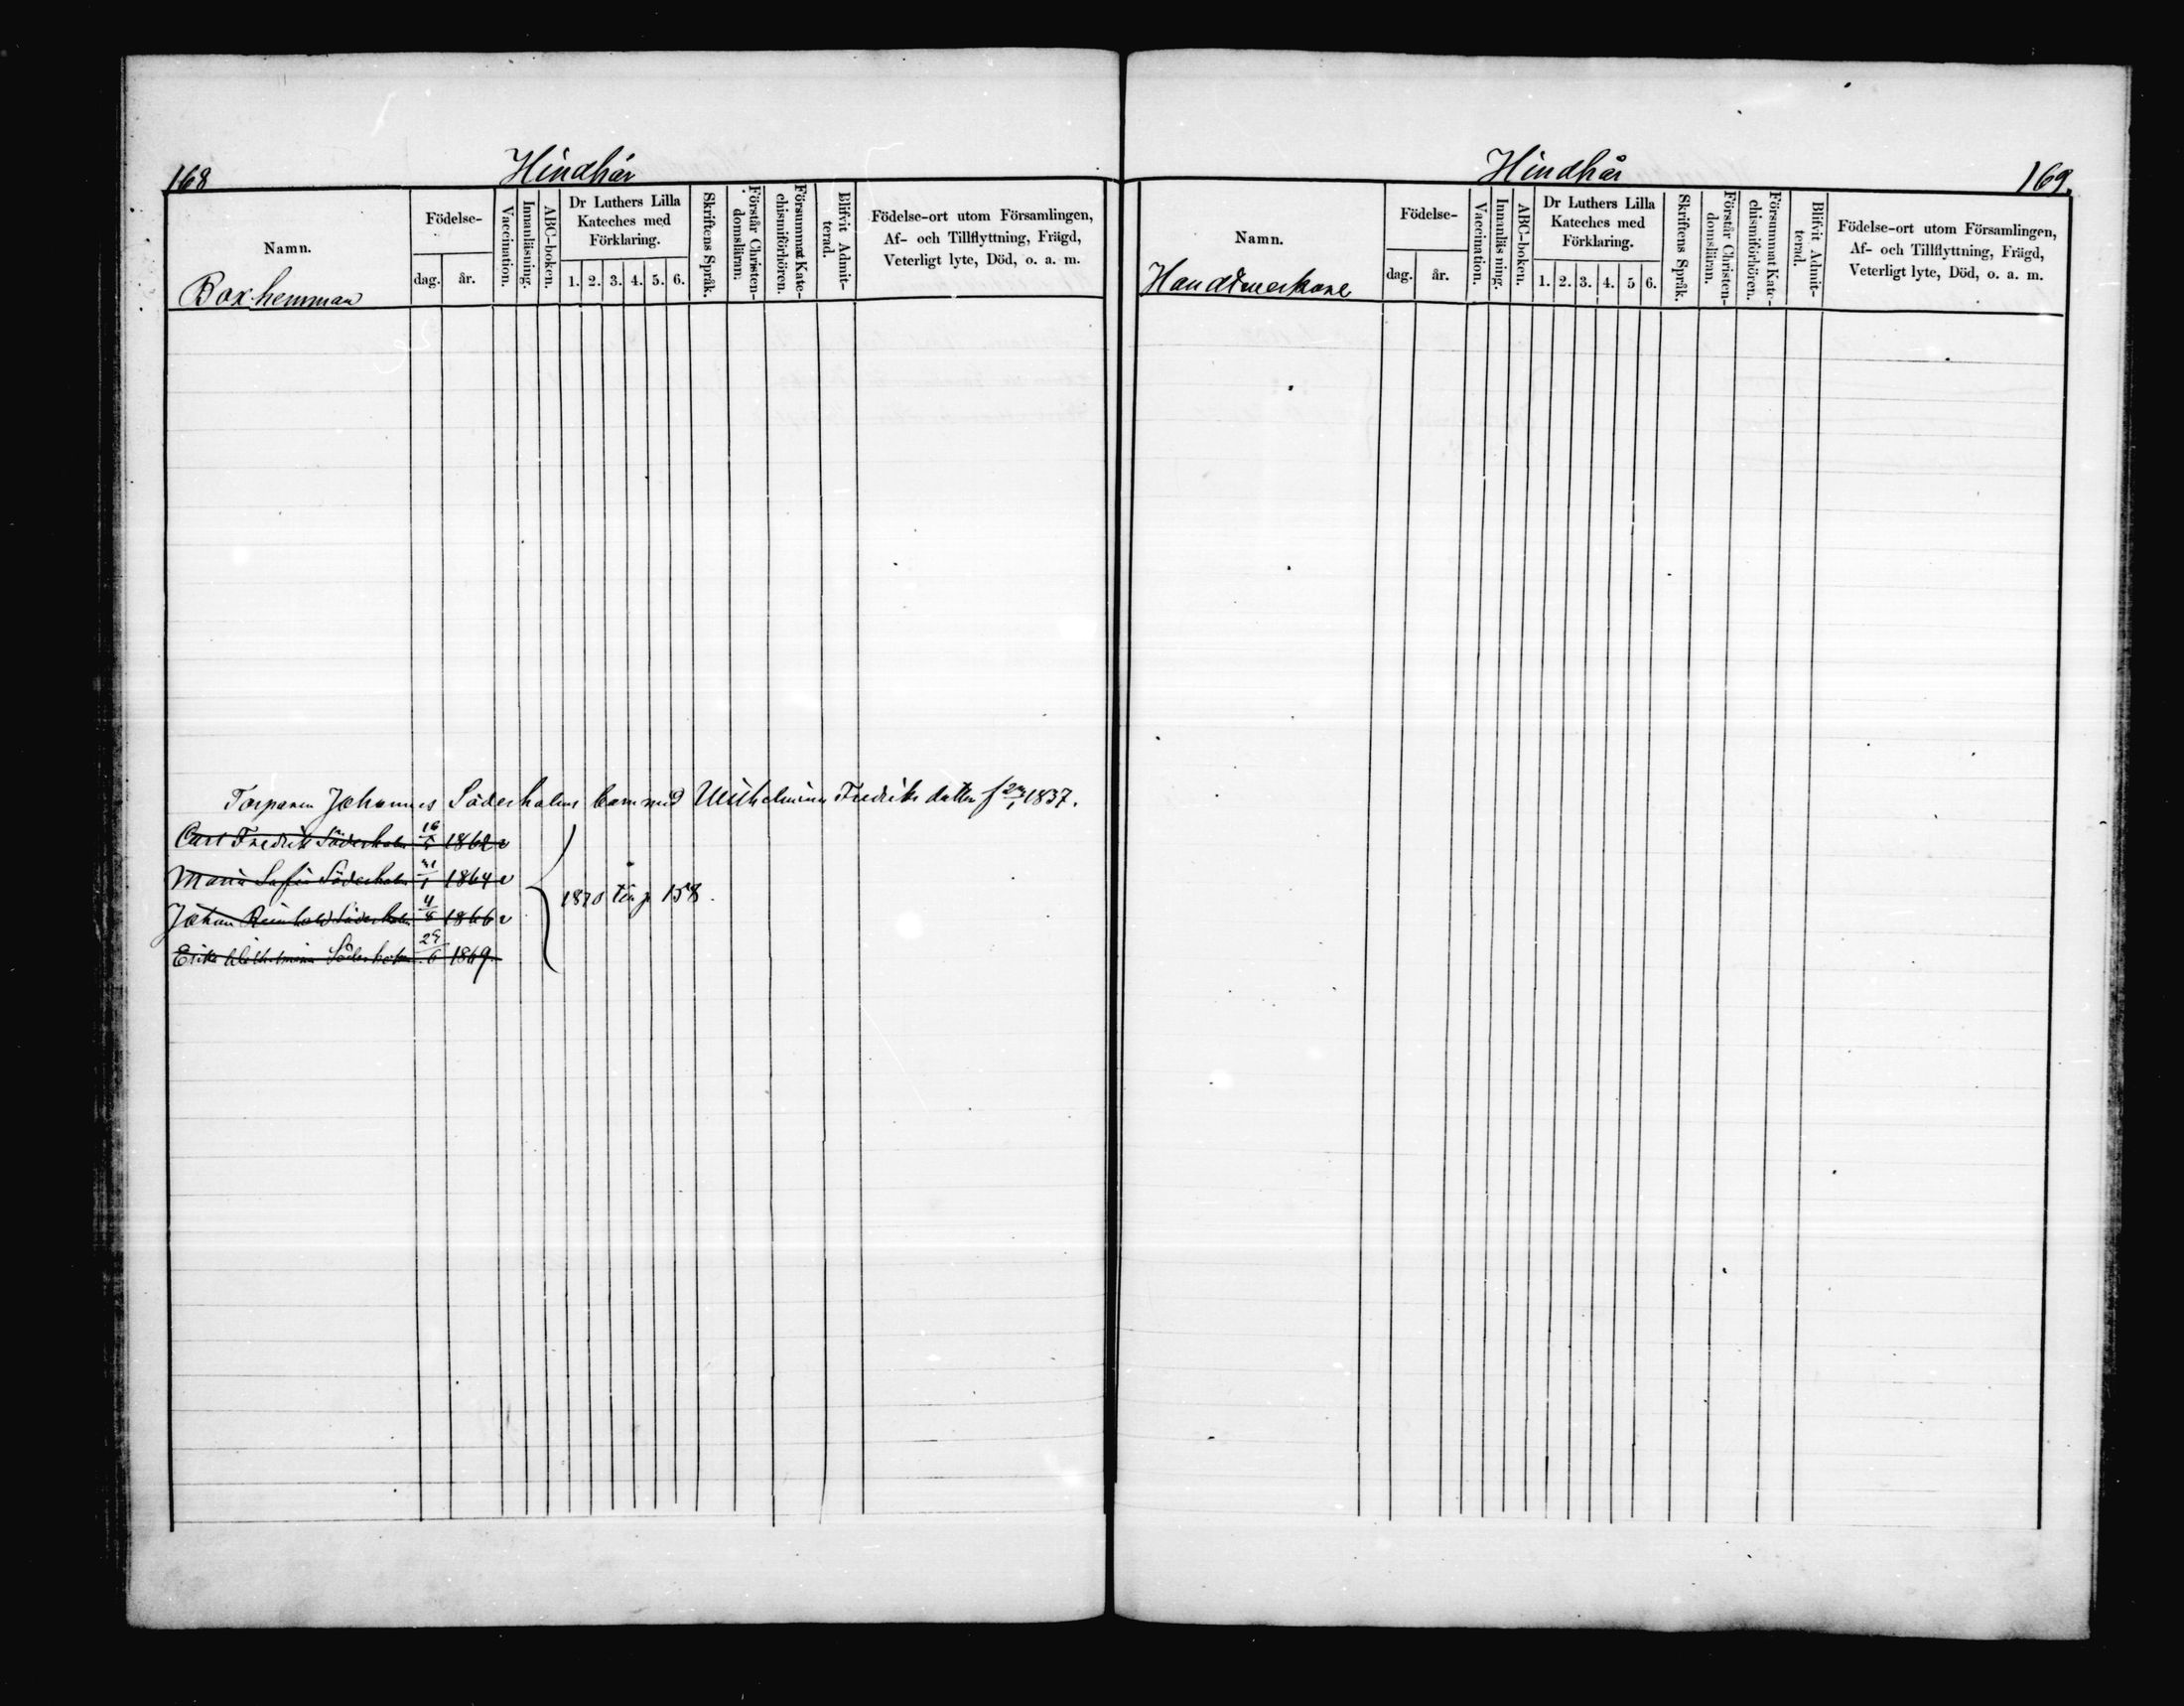 168
Hindhår
Namn.
Födelse-
dag. år.
Vaccination.
Innanläsning.
ABC-boken.
Dr Luthers Lilla
Kateches med
Förklaring.
1. 2. 3. 4. 5. 6.
Skriftens Språk.
Förstår Christen-
domsläran.
Försummat Kate-
chismiförhören.
Blifvit Admit-
terad.
Födelse-ort utom Församlingen,
Af- och Tillflyttning, Frägd,
Veterligt lyte, Död, o. a. m.
Box hemman
Torparen Johannes Söderholms barn med Wilhelmina Fredriks dotter f 1837.
Carl Fredrik Söderholm 16/5 1862 v
Maria Sofia Söderholm 1864 v
Johan Reinhold Söderholm 4/8 1866 v
1870 till p 158.
Erika Wilhelmina Söderholm 29/6 1869
Hindhår
169.
Namn.
Födelse-
dag. år.
Vaccination.
Innanläs ning.
ABC-boken.
Dr Luthers Lilla
Kateches med
Förklaring.
1. 2. 3. 4. 5 6.
Skriftens Språk.
Förstår Christen-
domsläran.
Försummat Kate-
chismiförhören.
Blifvit Admit-
terad.
Födelse-ort utom Församlingen,
Af- och Tillflyttning, Frägd,
Veterligt lyte, Död, o. a. m.
Handtverkare